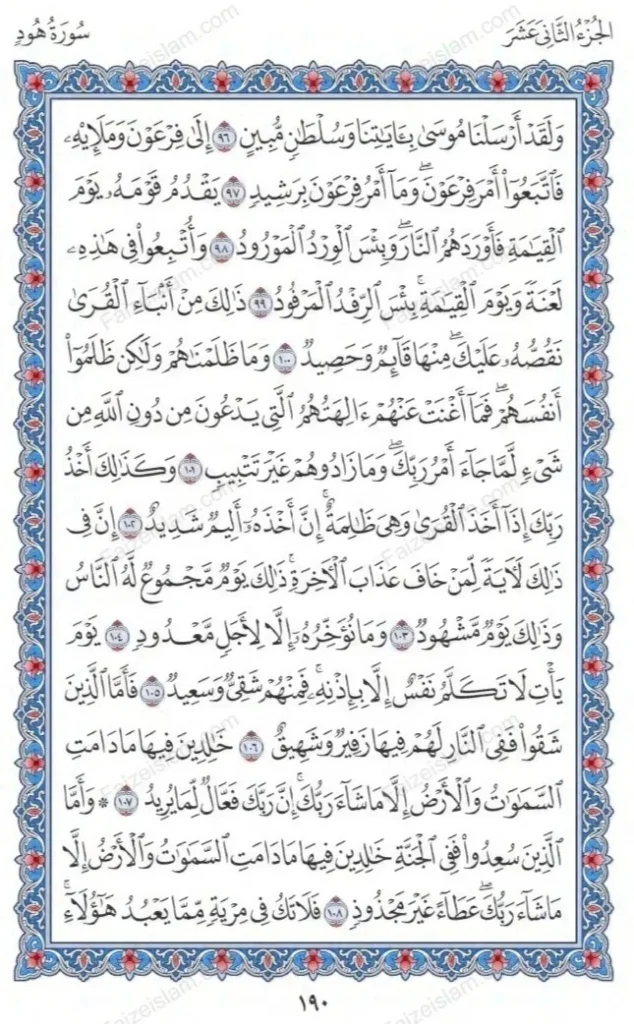 الجُزْءُ الثَّانِي عَشَرَ
سُورَةُ هُودٍ
وَلَقَدْ أَرْسَلْنَا مُوسَىٰ بِـَٔايَـٰتِنَا وَسُلْطَـٰنٍ مُّبِينٍ ٩٦ إِلَىٰ فِرْعَوْنَ وَمَلَإِيْهِۦ
فَٱتَّبَعُوٓا۟ أَمْرَ فِرْعَوْنَ ۖ وَمَآ أَمْرُ فِرْعَوْنَ بِرَشِيدٍ ٩٧ يَقْدُمُ قَوْمَهُۥ يَوْمَ
ٱلْقِيَـٰمَةِ فَأَوْرَدَهُمُ ٱلنَّارَ ۖ وَبِئْسَ ٱلْوِرْدُ ٱلْمَوْرُودُ ٩٨ وَأُتْبِعُوا۟ فِى هَـٰذِهِۦ
لَعْنَةً وَيَوْمَ ٱلْقِيَـٰمَةِ ۚ بِئْسَ ٱلرِّفْدُ ٱلْمَرْفُودُ ٩٩ ذَٰلِكَ مِنْ أَنۢبَآءِ ٱلْقُرَىٰ
نَقُصُّهُۥ عَلَيْكَ ۖ مِنْهَا قَآئِمٌ وَحَصِيدٌ ١٠٠ وَمَا ظَلَمْنَـٰهُمْ وَلَـٰكِن ظَلَمُوٓا۟
أَنفُسَهُمْ ۖ فَمَآ أَغْنَتْ عَنْهُمْ ءَالِهَتُهُمُ ٱلَّتِى يَدْعُونَ مِن دُونِ ٱللَّهِ مِن
شَىْءٍ لَّمَّا جَآءَ أَمْرُ رَبِّكَ ۖ وَمَا زَادُوهُمْ غَيْرَ تَتْبِيبٍ ١٠١ وَكَذَٰلِكَ أَخْذُ
رَبِّكَ إِذَآ أَخَذَ ٱلْقُرَىٰ وَهِىَ ظَـٰلِمَةٌ ۚ إِنَّ أَخْذَهُۥٓ أَلِيمٌ شَدِيدٌ ١٠٢ إِنَّ فِى
ذَٰلِكَ لَـَٔايَةً لِّمَنْ خَافَ عَذَابَ ٱلْـَٔاخِرَةِ ۚ ذَٰلِكَ يَوْمٌ مَّجْمُوعٌ لَّهُ ٱلنَّاسُ
وَذَٰلِكَ يَوْمٌ مَّشْهُودٌ ١٠٣ وَمَا نُؤَخِّرُهُۥٓ إِلَّا لِأَجَلٍ مَّعْدُودٍ ١٠٤ يَوْمَ
يَأْتِ لَا تَكَلَّمُ نَفْسٌ إِلَّا بِإِذْنِهِۦ ۚ فَمِنْهُمْ شَقِىٌّ وَسَعِيدٌ ١٠٥ فَأَمَّا ٱلَّذِينَ
شَقُوا۟ فَفِى ٱلنَّارِ لَهُمْ فِيهَا زَفِيرٌ وَشَهِيقٌ ١٠٦ خَـٰلِدِينَ فِيهَا مَا دَامَتِ
ٱلسَّمَـٰوَٰتُ وَٱلْأَرْضُ إِلَّا مَا شَآءَ رَبُّكَ ۚ إِنَّ رَبَّكَ فَعَّالٌ لِّمَا يُرِيدُ ١٠٧ * وَأَمَّا
ٱلَّذِينَ سُعِدُوا۟ فَفِى ٱلْجَنَّةِ خَـٰلِدِينَ فِيهَا مَا دَامَتِ ٱلسَّمَـٰوَٰتُ وَٱلْأَرْضُ إِلَّا
مَا شَآءَ رَبُّكَ ۖ عَطَآءً غَيْرَ مَجْذُوذٍ ١٠٨ فَلَا تَكُ فِى مِرْيَةٍ مِّمَّا يَعْبُدُ هَـٰٓؤُلَآءِ ۚ
١٩٠
Faizeislam.com